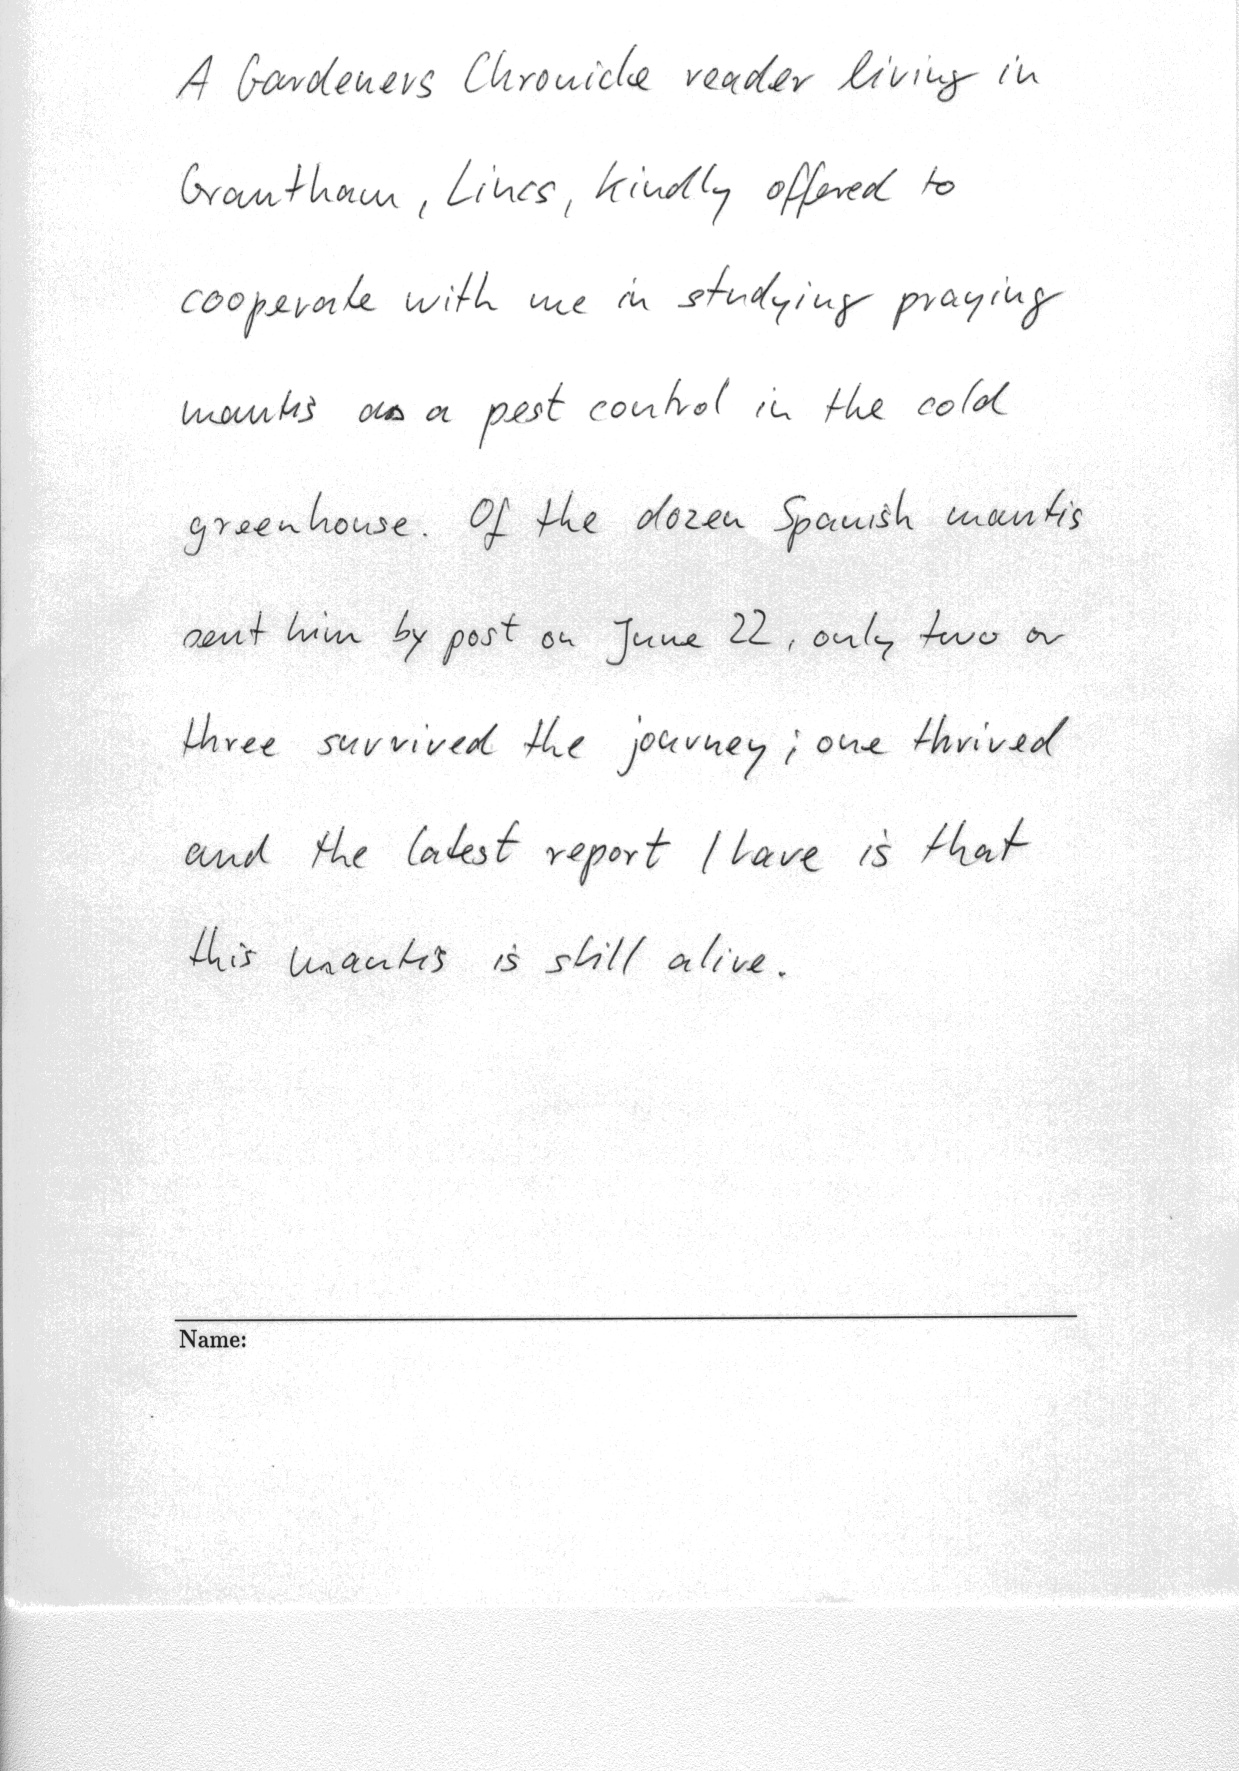 A Gardeners Chronicle reader living in
Grantham, Lincs, kindly offered to
cooperate with me in studying praying
mantis as a pest control in the cold
greenhouse. Of the dozen Spanish mantis
sent him by post on June 22, only two or
three survived the journey; one thrived
and the latest report I have is that
this mantis is still alive.
Name: